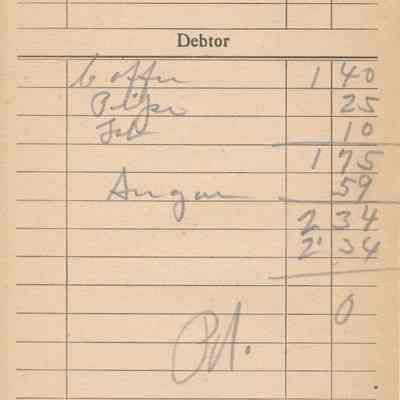 Debtor
Coffee 1 40
Pipe 25
10
1 75
Sugar 59
2 34
2 34
0
Pd.